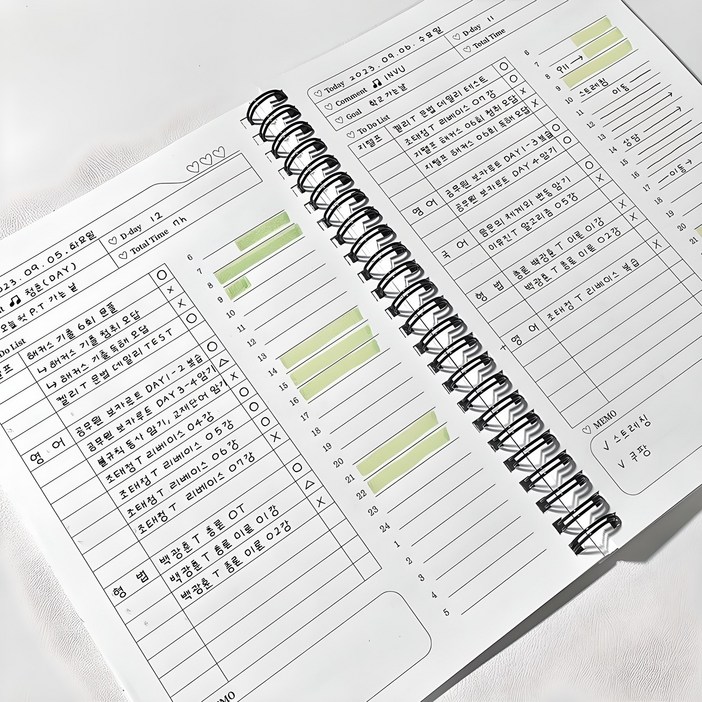 2023.09.05.화요일
D-day 12
청춘(DAY)
Total Time 7h
오늘 첫 P.T 가는 날
Do List
해커스 기출 6회 문풀
↳ 해커스 기출 청취 오답
↳ 해커스 기출 독해 오답
켈리T 문법 데일리 TEST
영어 공무원 보카르트 DAY1-2 복습
공무원 보카르트 DAY3-4 암기
불규칙 동사 암기, 교재단어 암기
조태정T 리베이스 04강
조태정T 리베이스 05강
조태정T 리베이스 06강
조태정T 리베이스 07강
형법 백광훈T 총론 OT
백광훈T 총론 이론 01강
백광훈T 총론 이론 02강
MO
6
7
8
9
10
11
12
13
14
15
16
17
18
19
20
21
22
23
24
1
2
3
4
5
Today 2023.09.06.수요일
D-day 11
Comment INVU
Total Time
Goal 학교 가는 날
To Do List
지텔프 켈리T 문법 데일리 테스트
조태정T 리베이스 07강
지텔프 해커스 06회 청취 오답
지텔프 해커스 06회 독해 오답
영어 공무원 보카르트 DAY1-3 복습
공무원 보카르트 DAY4 암기
국어 음운의 체계와 변동 암기
이유진T 알고리즘 05강
형법 총론 백광훈T 이론 01강
백광훈T 총론 이론 02강
영어 조태정T 리베이스 복습
MEMO
✓ 스트레칭
✓ 쿠팡
6
7
8
9
10 스트레칭
11 이동
12
13
14 상담
15
16
17 이동
18
19
20
21